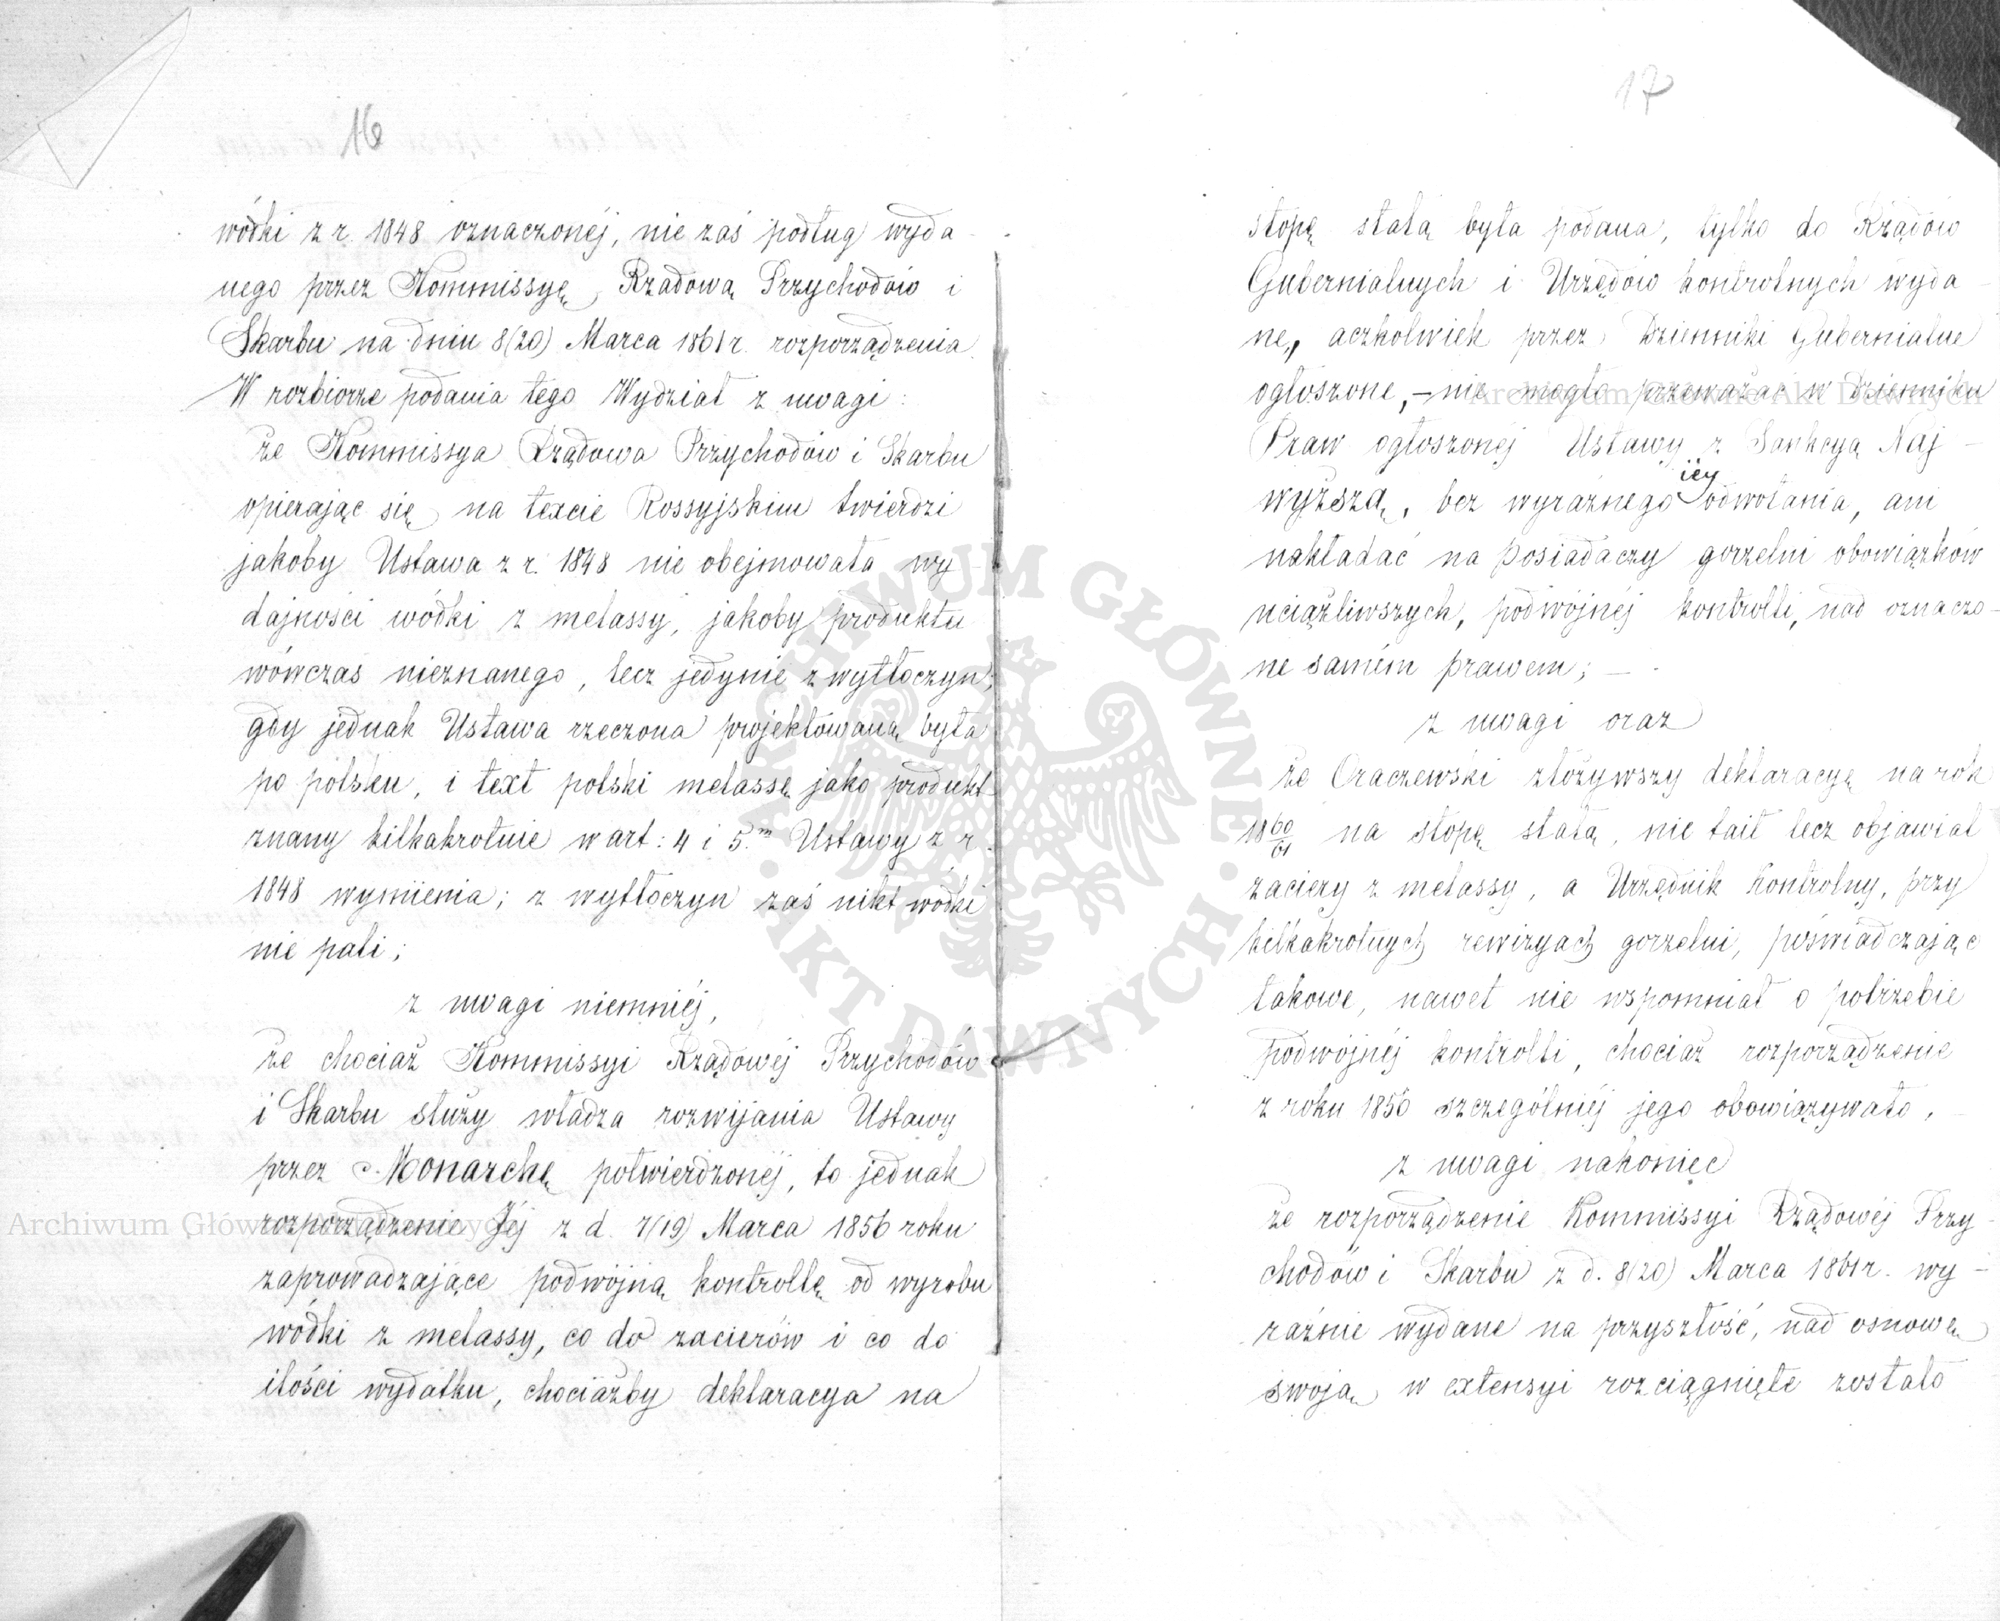 16
wódki z r. 1848 oznaczonéj, nie zaś podług wyda-
nego przez Kommissyę Rządową Przychodów i
Skarbu na dniu 8(20) Marca 1861 r. rozporządzenia
W rozbiorze podania tego Wydział z uwagi:
że Kommissya Rządowa Przychodów i Skarbu
opierając się na texcie Rossyjskim twierdzi
jakoby Ustawa z r. 1848 nie obejmowała wy-
dajności wódki z melassy, jakoby produktu
wówczas nieznanego, lecz jedynie z wytłoczyn;
gdy jednak Ustawa rzeczona projektowaną była
po polsku, i text polski melassę jako produkt
znany kilkakrotnie w art: 4 i 5.m Ustawy z r.
1848 wymienia; z wytłoczyn zaś nikt wódki
nie pali;
z uwagi niemniéj,
że chociaż Kommissyi Rządowéj Przychodów
i Skarbu służy władza rozwijania Ustawy
przez Monarchę potwierdzonéj, to jednak
rozporządzenie Jéj z d. 7(19) Marca 1856 roku
zaprowadzające podwójną kontrollę od wyrobu
wódki z melassy, co do zacierów i co do
ilości wydatku, chociażby deklaracya na
17
stopę stałą była podana, tylko do Rządów
Gubernialnych i Urzędów kontrolnych wyda-
ne, aczkolwiek przez Dzienniki Gubernialne
ogłoszone, – nie mogło przeważać w Dzienniku
Praw ogłoszonéj Ustawy z Sankcyą Naj-
wyższą, bez wyraźnego iéy odwołania, ani
nakładać na posiadaczy gorzelni obowiązków
uciążliwszych, podwójnéj kontrolli, nad oznaczo-
ne samém prawem; –
z uwagi oraz
że Oraczewski złożywszy deklaracyę na rok
1860/61 na stopę stałą, nie taił lecz objawiał
zaciery z melassy, a Urzędnik kontrolny, przy
kilkakrotnych rewizyach gorzelni, poświadczając
takowe, nawet nie wspomniał o potrzebie
podwójnéj kontrolli, chociaż rozporządzenie
z roku 1856 szczególniéj jego obowiązywało,
z uwagi nakoniec
że rozporządzenie Kommissyi Rządowéj Przy-
chodów i Skarbu z d. 8(20) Marca 1861 r. wy-
raźnie wydane na przyszłość, nad osnowę
swoją w extensyi rozciągnięte zostało
Archiwum Główne Akt Dawnych
ARCHIWUM GŁÓWNE · AKT DAWNYCH ·